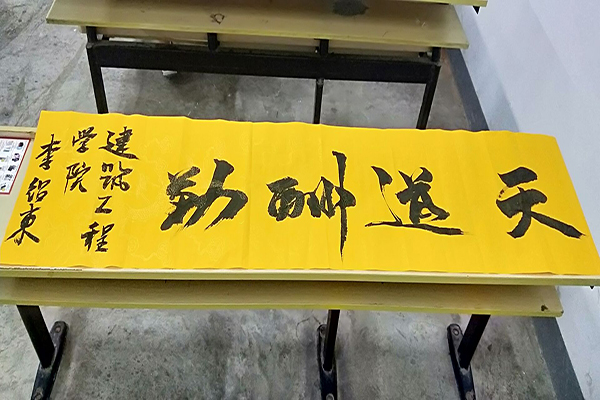 天道酬勤
建筑工程
学院
李绍东